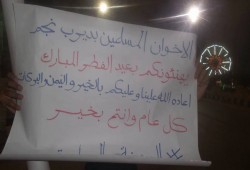 الاخوان المسلمين بديرب نجم
يهنئونكم بعيد الفطر المبارك
اعاده الله علينا وعليكم بالخير واليمن والبركات
كل عام وانتم بخير